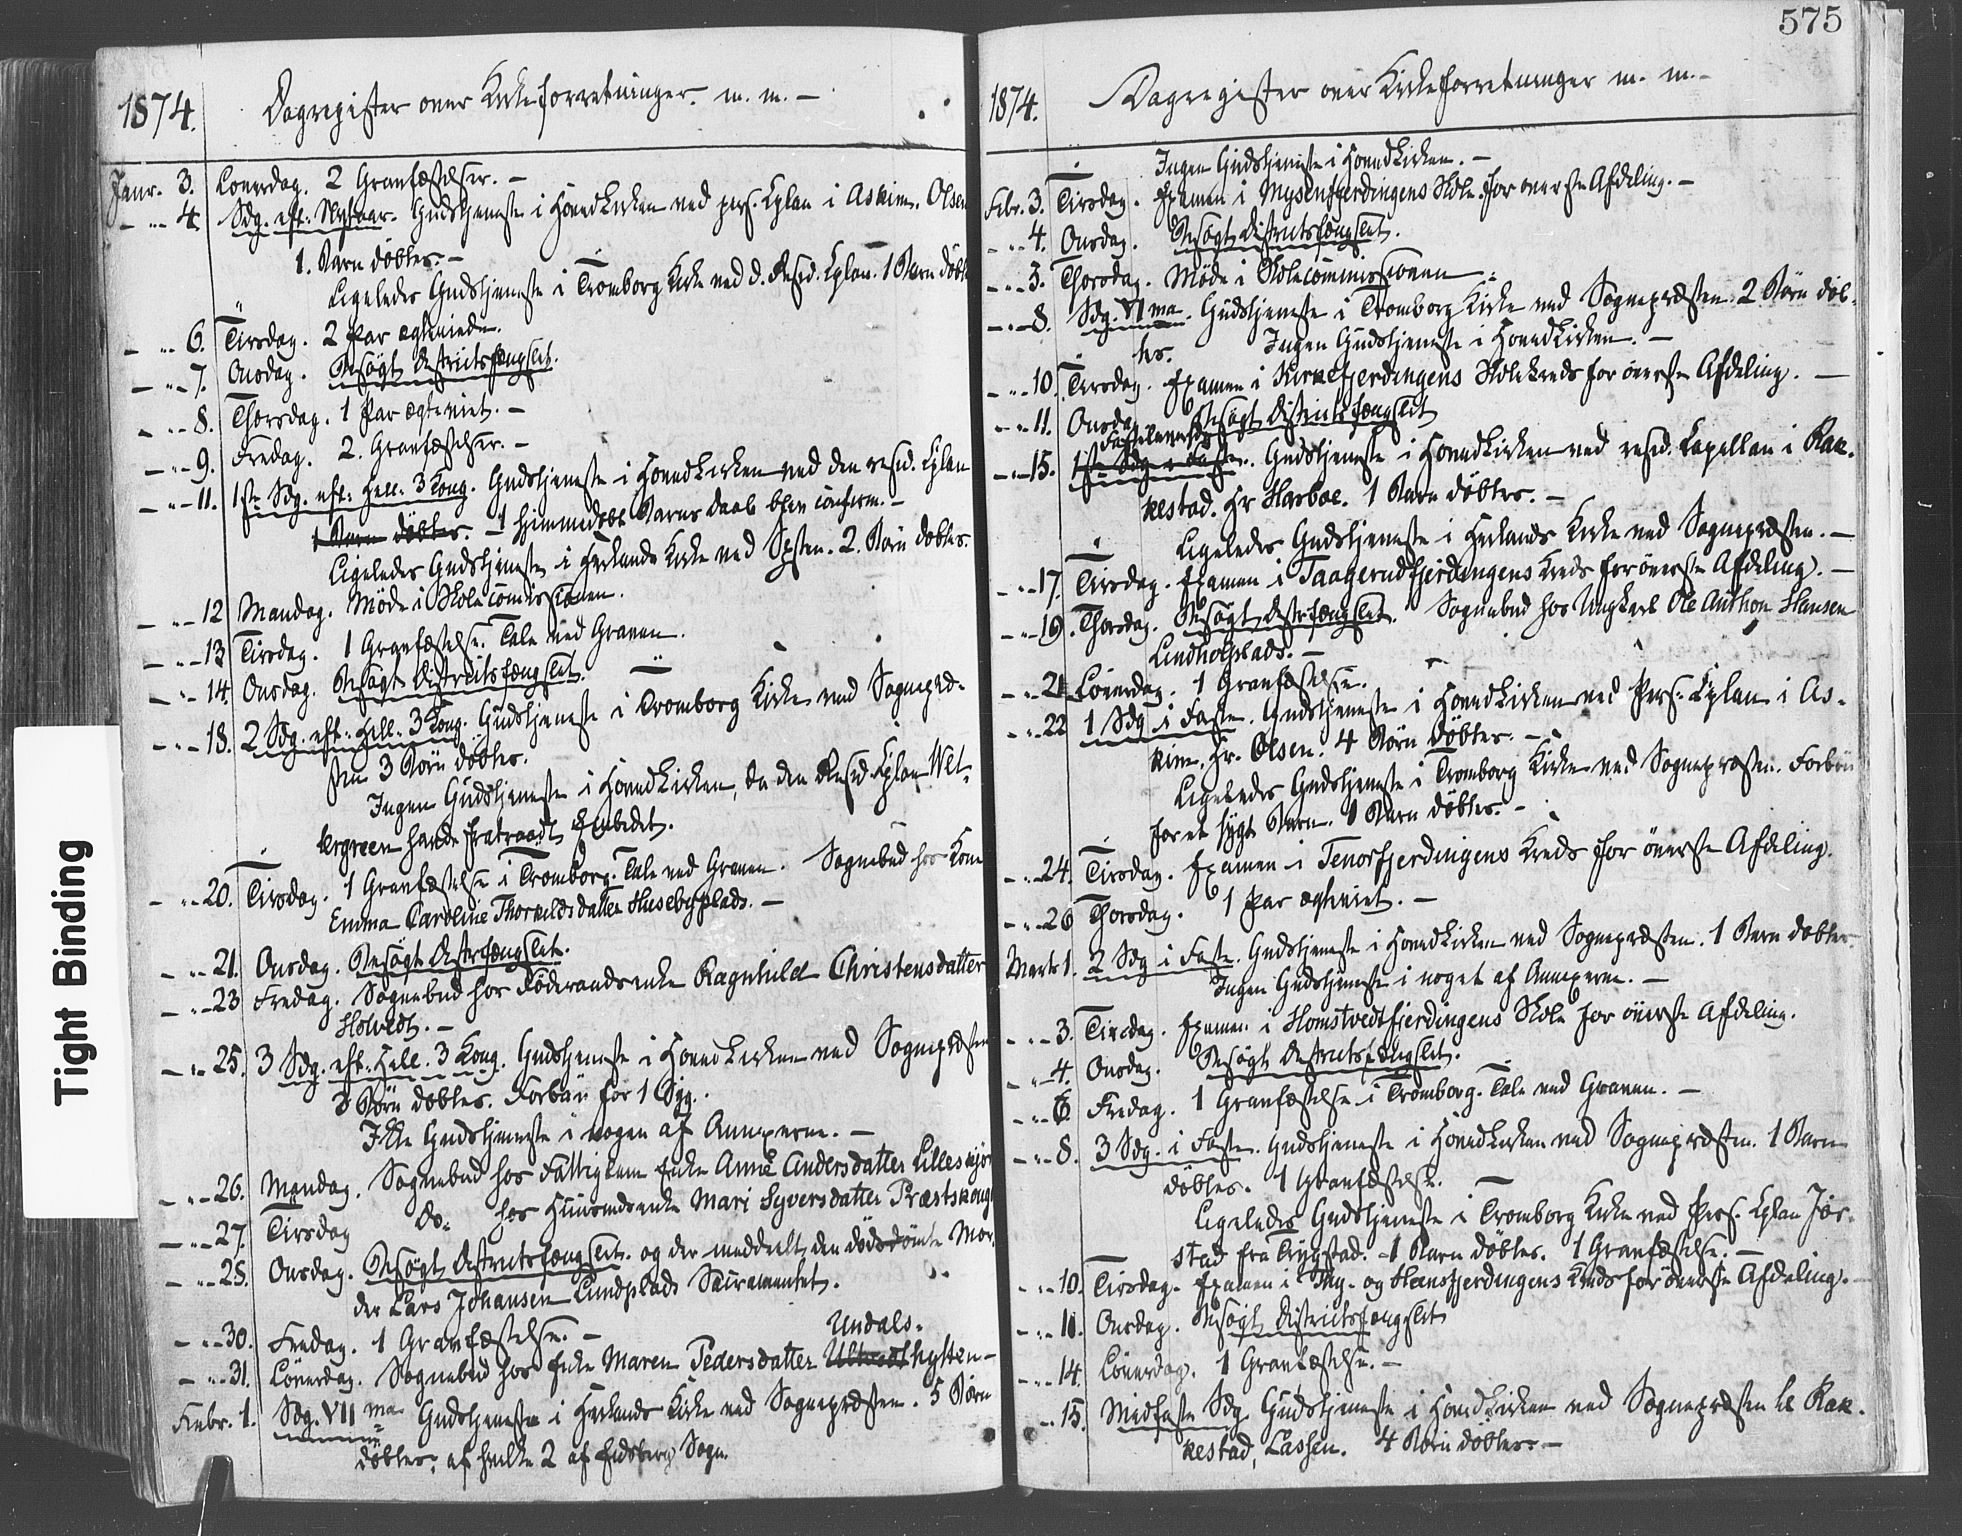 575
1874. Dagregister over Kirkeforretninger. m. m. —
Janr. 3. Løverdag. 2 Gravfæstelser. —
— „ — 4. Sdg. eft: Nytaar. Gudstjeneste i Hovedkirken ved pers. Cplan i Askim. Olsen
1. Barn døbtes. —
Ligeledes Gudstjeneste i Tromborg Kirke ved d. Resid. Cplan. 1 Barn døbt
— „ 6. Tirsdag. 2 Par ægteviede.
— „ — 7. Onsdag. Besøgt Districtsfængslet.
— „ — 8. Thorsdag. 1 Par ægteviet. —
— „ — 9. Fredag. 2. Gravfæstelser. —
— „ — 11. 1ste Sdg. eft: Hell: 3 Kong. Gudstjeneste i Hovedkirken ved den resid. Cplan
1 Barn døbtes. — 1 hjemmedøbt Barns Daab blev confirm. —
Ligeledes Gudstjeneste i Herlands Kirke ved Spsten. 2. Børn døbtes.
— „ — 12 Mandag. Møde i Skolecommissionen.
— „ — 13 Tirsdag. 1 Gravfæstelse. Tale ved Graven.
— „ — 14. Onsdag. Besøgt Districtsfængslet.
— „ — 18. 2 Sdg. eft: Hell: 3 Kong. Gudstjeneste i Tromborg Kirke ved Sognepræ-
sten 3 Børn døbtes.
Ingen Gudstjeneste i Hovedkirken, da den Resid. Cplan Wet-
tergreen havde fratraadt Embedet.
— „ — 20. Tirsdag. 1 Gravfæstelse i Tromborg. Tale ved Graven. Sognebud hos Kone
Emma Caroline Thorvildsdatter Husebyplads. —
— „ — 21. Onsdag. Besøgt Distrfængslet.
— „ — 23 Fredag. Sognebud hos Föderaadsenke Ragnhild Christensdatter
Holvedt. —
— „ — 25. 3 Sdg. eft. Hell. 3 Kong. Gudstjeneste i Hovedkirken ved Sognepræsten
3 Børn døbtes. Forbön for 1 Syg.
Ikke Gudstjeneste i nogen af Annexerne. —
— „ — 26. Mandag. Sognebud hos Fattiglem Enke Anne Andersdatter Lillesmör
— „ — 27. Tirsdag do. hos Huusmdsenke Mari Syversdatter Præstskoug
— „ — 28. Onsdag. Besøgt Districtsfængslet. og der meddeelt den dödsdömte Mor-
der Lars Johansen Lundplads Sacramentet.
— „ — 30. Fredag. 1 Gravfæstelse. —
Undals-
— „ — 31. Löverdag. Sognebud hos Enke Maren Pedersdatter hytten —
Febr. 1. Sdg. VII ma Gudstjeneste i Herlands Kirke ved Sognepræsten. 5 Børn
døbtes, af hvilke 2 af Eidsberg Sogn.
1874. Dagregister over Kirkeforretninger m. m. —
Ingen Gudstjeneste i Hovedkirken. —
Febr. 3. Tirsdag. Examen i Mysenfjerdingens Skole for øverste Afdeling. —
— „ — 4. Onsdag. Besøgt Districtsfængslet.
— „ — 3. Thorsdag. Møde i Skolecommissionen
— „ — 8. Sdg. VI ma. Gudstjeneste i Tromborg Kirke ved Sognepræsten. 2 Børn døb-
tes. Ingen Gudstjeneste i Hovedkirken. —
— „ — 10. Tirsdag. Examen i Kirkefjerdingens Skolekreds for øverste Afdeling. —
— „ — 11. Onsdag Besøgt Districtsfængslet
Fastelavns
— „ — 15. 1ste Sdg. i Faste. Gudstjeneste i Hovedkirken ved resid. Capellan i Rak-
kestad. Hr Harboe. 1 Barn døbtes. —
Ligeledes Gudstjeneste i Herlands Kirke ved Sognepræsten. —
— „ — 17. Tirsdag. Examen i Taagerudfjerdingens Kreds for øverste Afdeling. —
— „ — 19. Thorsdag. Besøgt Distrfængslet. Sognebud hos Ungkarl Ole Anthon Hansen
Lindholplads. —
— „ — 21 Løverdag. 1 Gravfæstelse.
— „ — 22 1 Sdg i Faste. Gudstjeneste i Hovedkirken ved Pers: Cplan i As-
kim, Hr. Olsen. 4 Børn døbtes. —
Ligeledes Gudstjeneste i Tromborg Kirke ved Sognepræsten. Forbön
for et sygt Barn. 1 Barn døbtes. —
— „ — 24. Tirsdag. Examen i Tenorfjerdingens Kreds for øverste Afdeling.
— „ — 26 Thorsdag. 1 Par ægteviet. —
Marts 1. 2 Sdg i Faste. Gudstjeneste i Hovedkirken ved Sognepræsten. 1 Barn døbtes.
Ingen Gudstjeneste i noget af Annexerne. —
— „ — 3. Tirsdag. Examen i Homstvedtfjerdingens Skole for øverste Afdeling.
— „ — 4. Onsdag. Besøgt Districtsfængslet.
— „ — 6 Fredag. 1 Gravfæstelse i Tromborg. Tale ved Graven. —
— „ — 8. 3 Sdg. i Faste. Gudstjeneste i Hovedkirken ved Sognepræsten. 1 Barn
døbtes. 1 Gravfæstelse.
Ligeledes Gudstjeneste i Tromborg Kirke ved Pers. Cplan Jør-
stad fra Trygstad. 1 Barn døbtes. 1 Gravfæstelse. —
— „ — 10. Tirsdag. Examen i og Hensfjerdingens Kreds for øverste Afdeling. —
— „ — 11. Onsdag. Besøgt Districtsfængslet
— „ — 14. Löverdag. 1 Gravfæstelse. —
— „ — 15. Midfaste Sdg. Gudstjeneste i Hovedkirken ved Sognepræsten til Rak-
kestad, Lassen. 4 Børn døbtes. —
Tight Binding